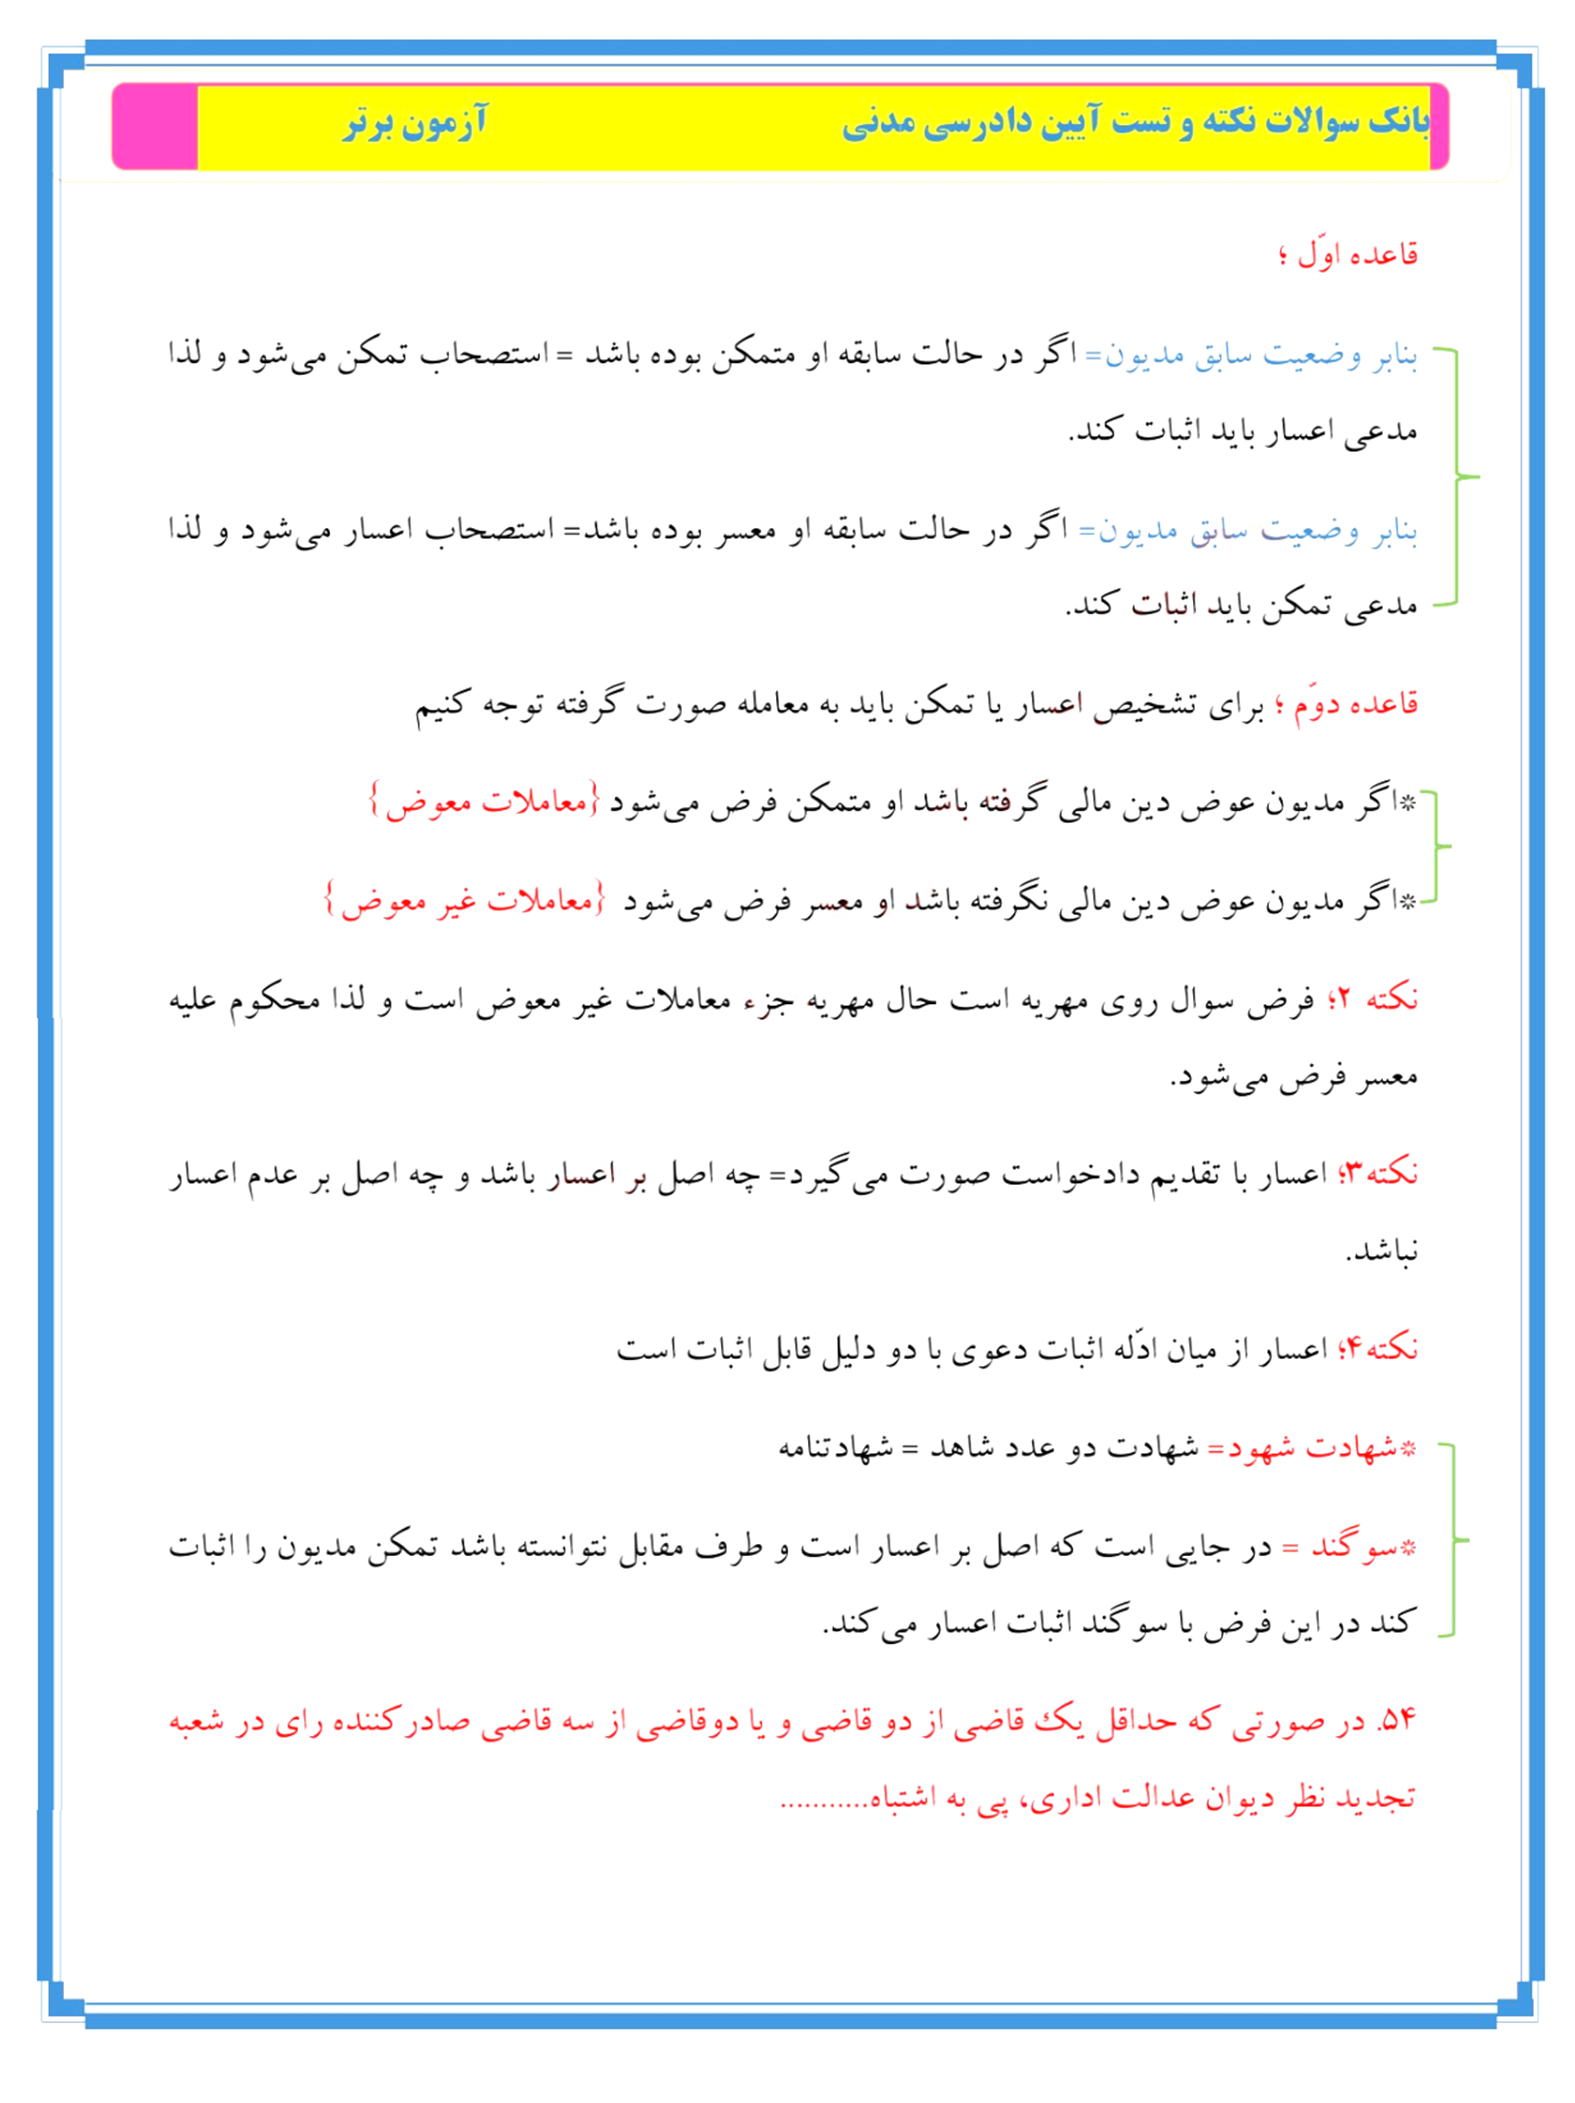 بانک سوالات نکته و تست آیین دادرسی مدنی آزمون برتر
قاعده اوّل ؛
بنابر وضعیت سابق مدیون= اگر در حالت سابقه او متمکن بوده باشد = استصحاب تمکن می‌شود و لذا
مدعی اعسار باید اثبات کند.
بنابر وضعیت سابق مدیون= اگر در حالت سابقه او معسر بوده باشد= استصحاب اعسار می‌شود و لذا
مدعی تمکن باید اثبات کند.
قاعده دوّم ؛ برای تشخیص اعسار یا تمکن باید به معامله صورت گرفته توجه کنیم
*اگر مدیون عوض دین مالی گرفته باشد او متمکن فرض می‌شود {معاملات معوض}
*اگر مدیون عوض دین مالی نگرفته باشد او معسر فرض می‌شود {معاملات غیر معوض}
نکته ۲؛ فرض سوال روی مهریه است حال مهریه جزء معاملات غیر معوض است و لذا محکوم علیه
معسر فرض می‌شود.
نکته۳؛ اعسار با تقدیم دادخواست صورت می‌گیرد= چه اصل بر اعسار باشد و چه اصل بر عدم اعسار
نباشد.
نکته۴؛ اعسار از میان ادّله اثبات دعوی با دو دلیل قابل اثبات است
*شهادت شهود= شهادت دو عدد شاهد = شهادتنامه
*سوگند = در جایی است که اصل بر اعسار است و طرف مقابل نتوانسته باشد تمکن مدیون را اثبات
کند در این فرض با سوگند اثبات اعسار می‌کند.
۵۴. در صورتی که حداقل یک قاضی از دو قاضی و یا دوقاضی از سه قاضی صادرکننده رای در شعبه
تجدید نظر دیوان عدالت اداری، پی به اشتباه...........